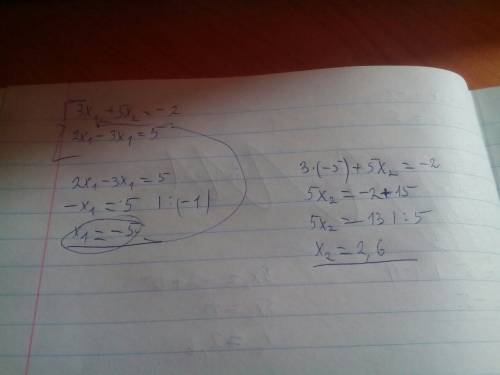 3x₁ + 5x₂ = -2
2x₁ - 3x₁ = 5
2x₁ - 3x₁ = 5
-x₁ = 5 | : (-1)
x₁ = -5
3·(-5) + 5x₂ = -2
5x₂ = -2+15
5x₂ = 13 | : 5
x₂ = 2,6